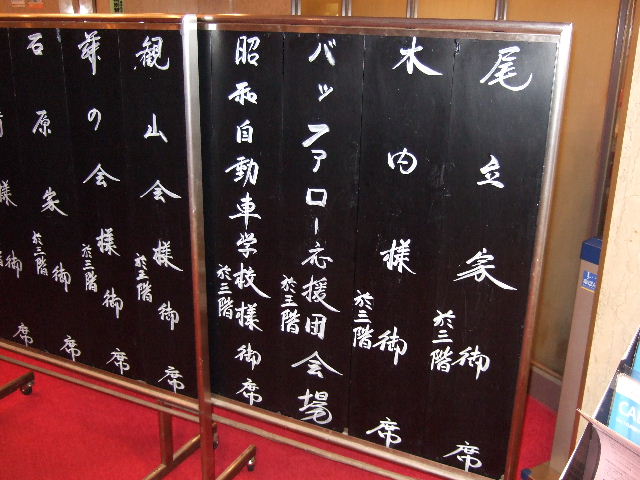 尾立家御席
於三階
木内様御席
於三階
バッファロー応援団会場
於五階
昭和自動車学校様御席
於三階
観山会様御席
於五階
の会様御席
於三階
石原家御席
於三階
様御席